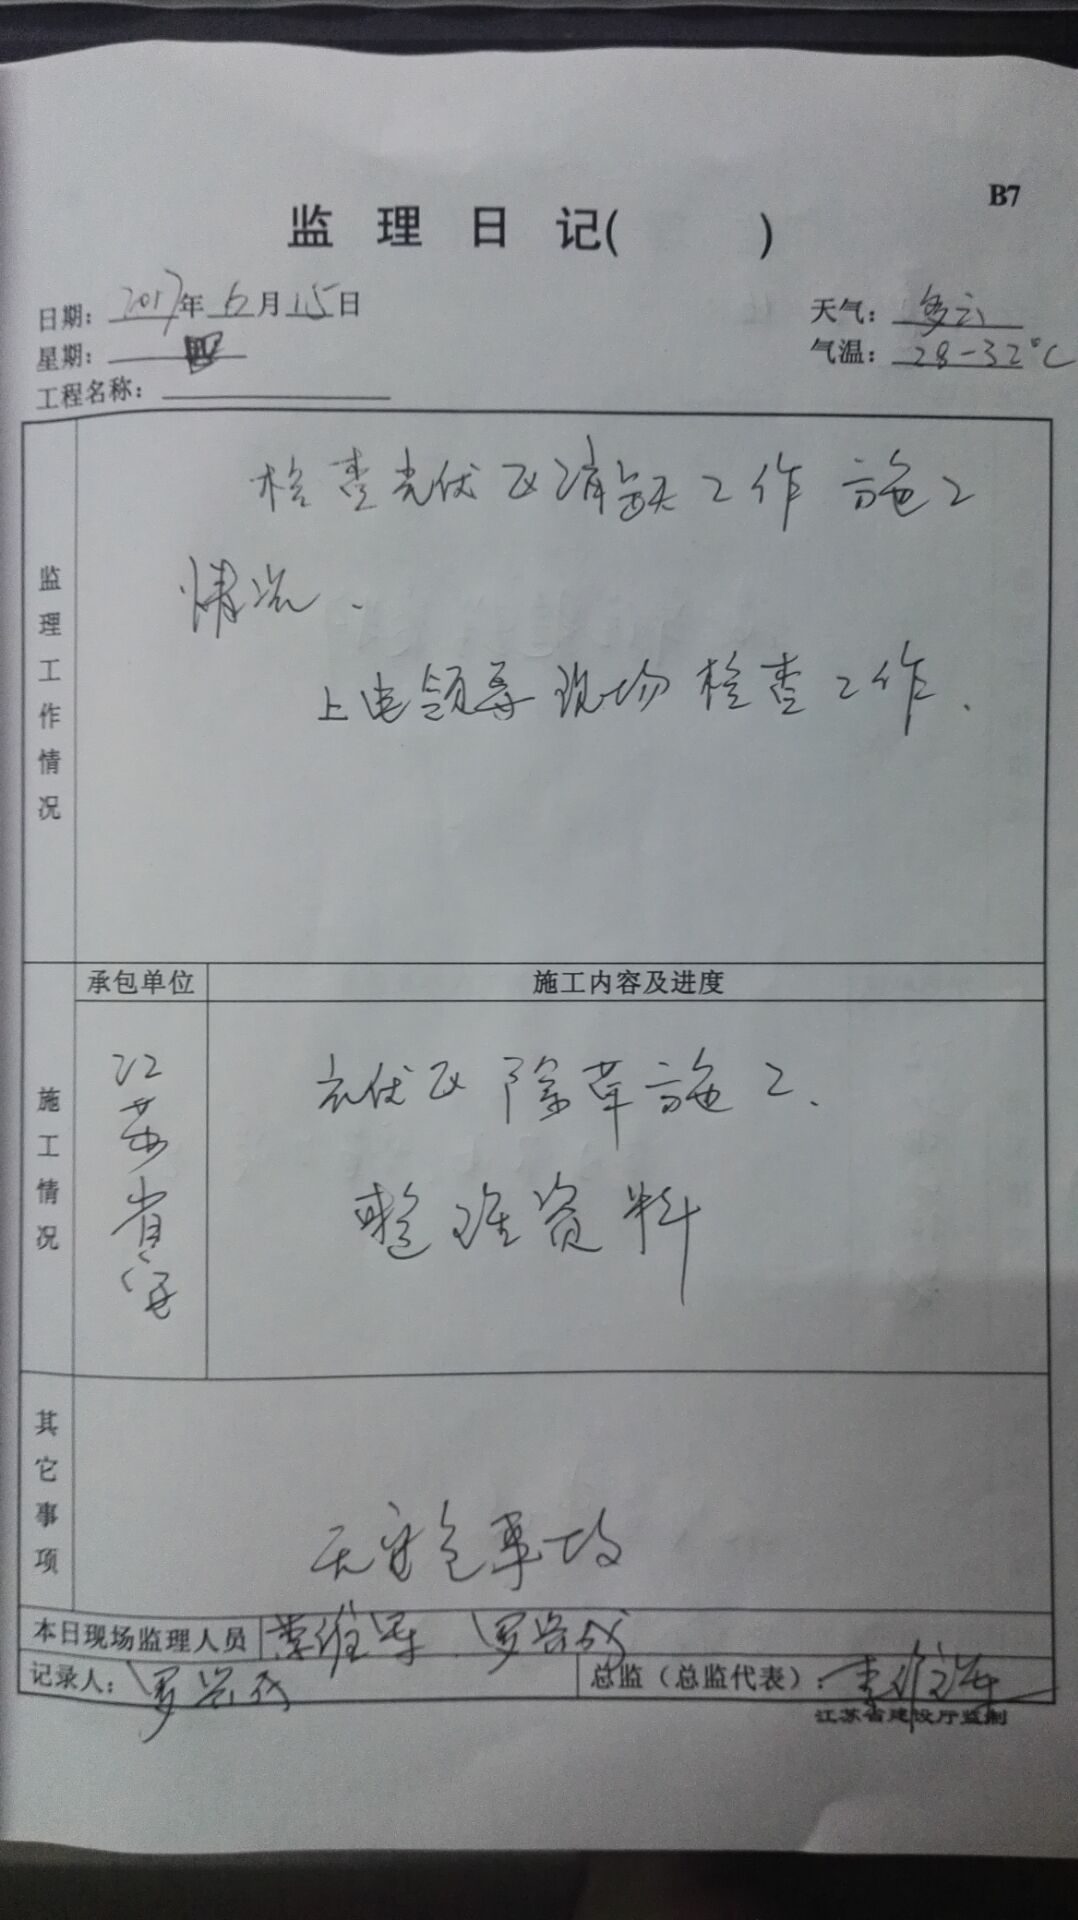 B7
监理日记( )
日期: 2017年6月15日
天气: 多云
星期: 四
气温: 28-32℃
工程名称:
监理工作情况
检查光伏区消缺工作施工
情况.
上电领导现场检查工作.
承包单位
施工内容及进度
施工情况
光伏区除草施工.
整理资料
其它事项
无安全事故
本日现场监理人员
罗兴成
记录人: 罗兴成
总监(总监代表):
江苏省建设厅监制